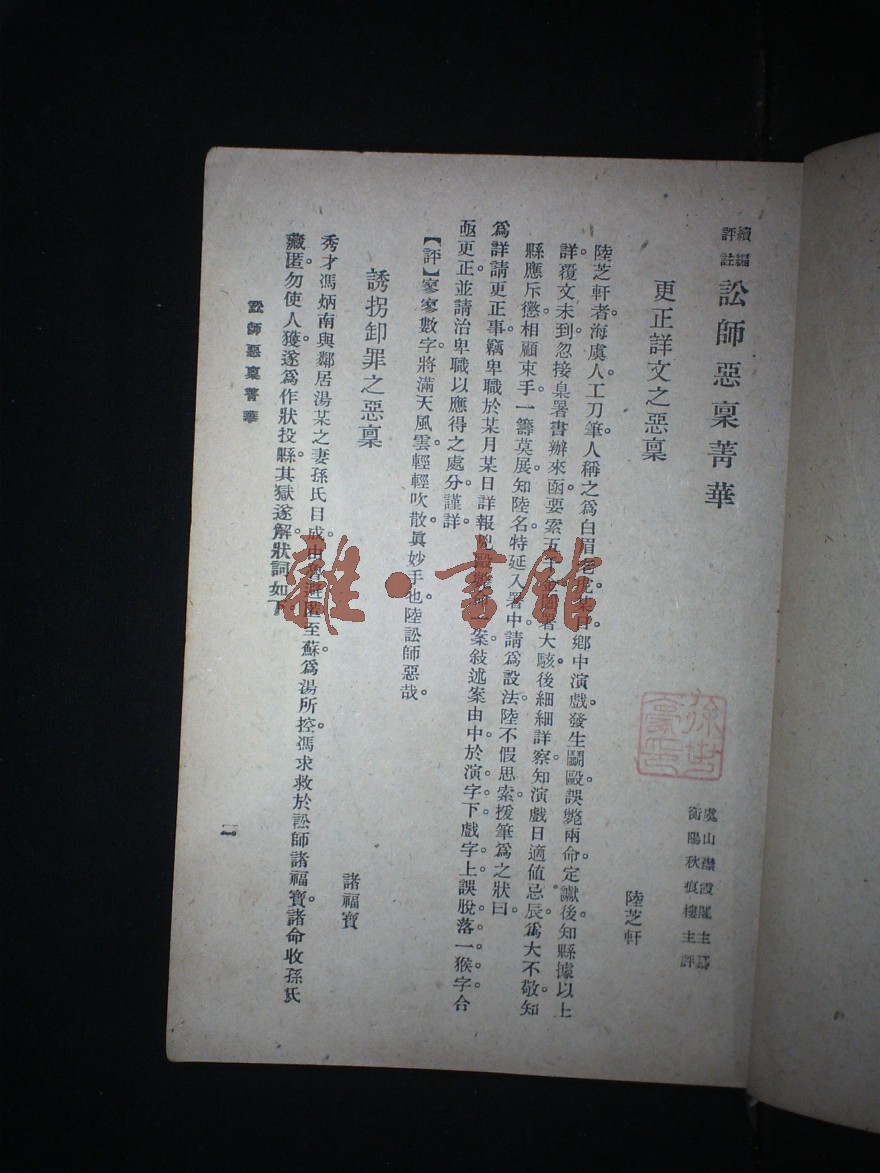 續編
評註
訟師惡稟菁華
虞山襟霞閣主
衡陽秋痕樓主評
更正詳文之惡稟
陸芝軒
陸芝軒者。海虞人。工刀筆。人稱之爲白眉老虎。某日鄉中演戲。發生鬭毆。誤斃兩命。定讞後。知縣據以上
詳。覆文未到。忽接臬署書辦來函。要索五千金。闔署大駭。後細細詳察。知演戲日適値忌辰。爲大不敬。知
縣應斥懲。相顧束手。一籌莫展。知陸名。特延入署中。請爲設法。陸不假思索。援筆爲之狀曰。
爲詳請更正事。竊卑職於某月某日詳報兇毆斃一案。敍述案由中。於演字下戲字上。誤脫落一猴字。合
亟更正。並請治卑職以應得之處分。謹詳
【評】寥寥數字。將滿天風雲。輕輕吹散。眞妙手也。陸訟師惡哉。
誘拐卸罪之惡稟
諸福寶
秀才馮炳南與鄰居湯某之妻孫氏目成。由避匿至蘇。爲湯所控。馮求救於訟師諸福寶。諸命收孫氏
藏匿。勿使人獲。遂爲作狀投縣。其獄遂解。狀詞如下。
訟師惡稟菁華
一
雜·書館
徐世